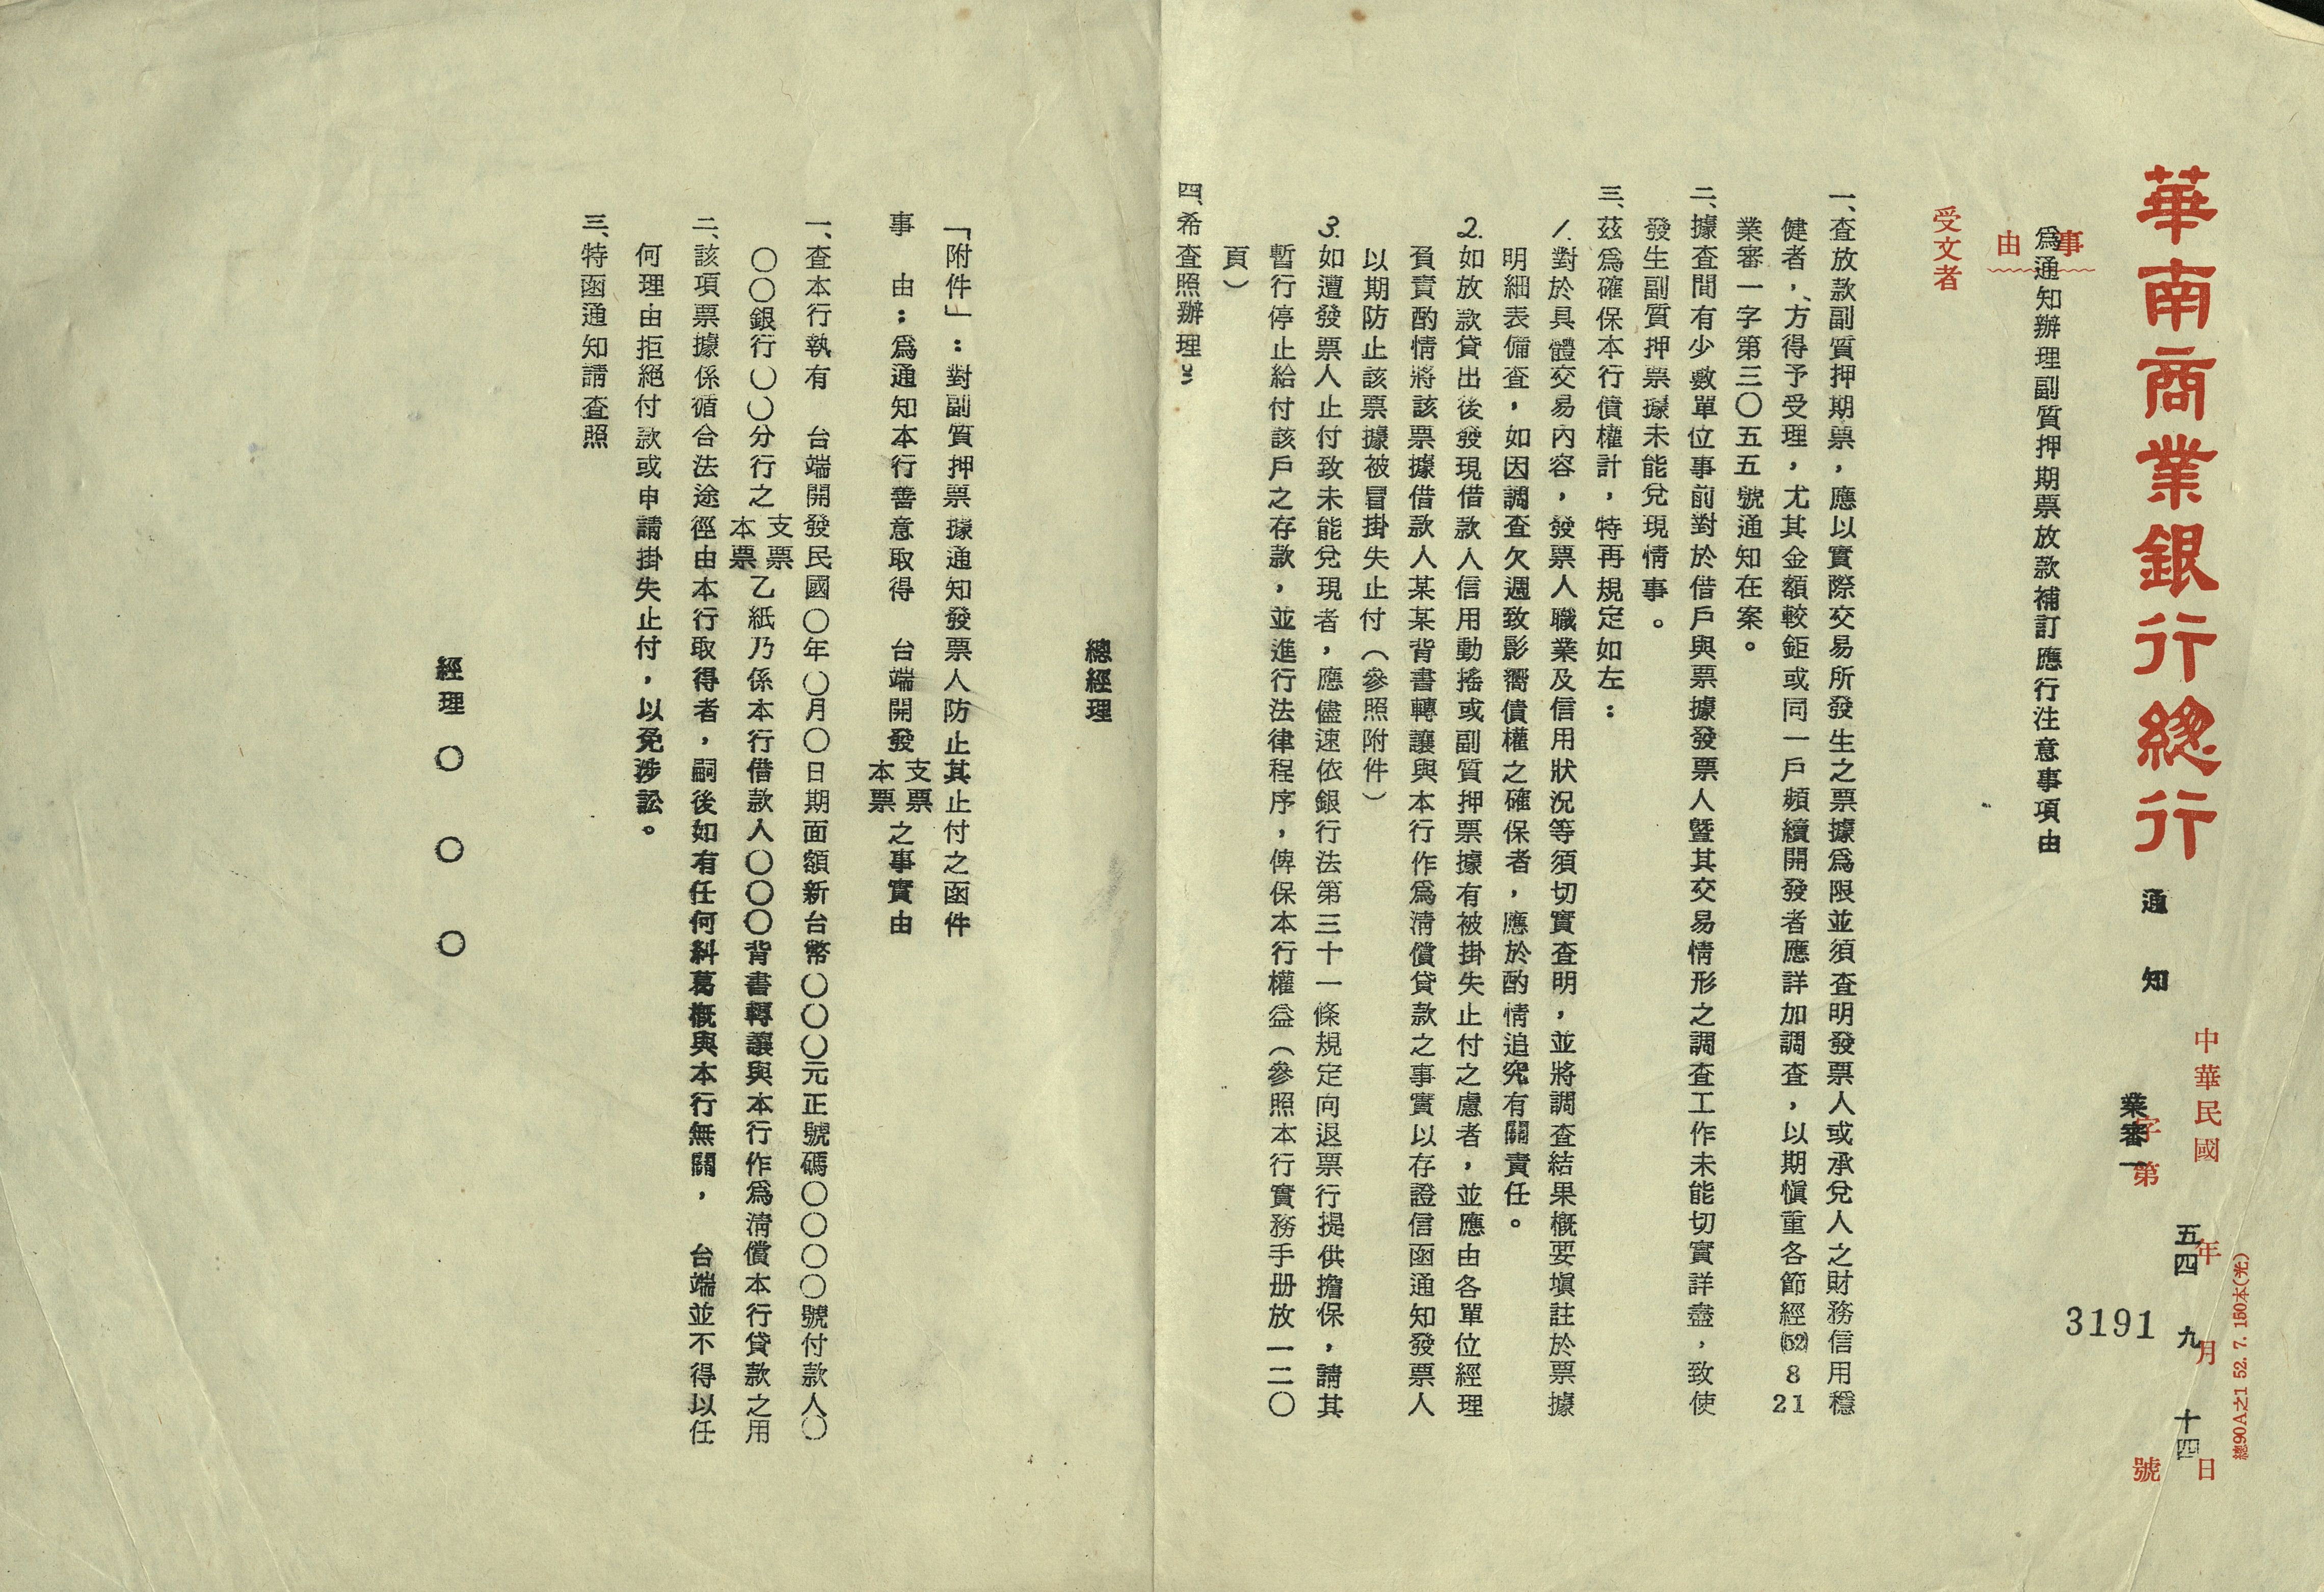 華南商業銀行總行 通知
總90A之1 52. 7. 150本(光)
中華民國五四年九月十四日
業審一字第3191號
事由
為通知辦理副質押期票放款補訂應行注意事項由
受文者
一、查放款副質押期票，應以實際交易所發生之票據為限並須查明發票人或承兌人之財務信用穩
健者，方得予受理，尤其金額較鉅或同一戶頻續開發者應詳加調查，以期慎重各節經(52) 8 21
業審一字第三〇五五號通知在案。
二、據查間有少數單位事前對於借戶與票據發票人暨其交易情形之調查工作未能切實詳盡，致使
發生副質押票據未能兌現情事。
三、茲為確保本行債權計，特再規定如左：
1.對於具體交易內容，發票人職業及信用狀況等須切實查明，並將調查結果概要填註於票據
明細表備查，如因調查欠週致影嚮債權之確保者，應於酌情追究有關責任。
2.如放款貸出後發現借款人信用動搖或副質押票據有被掛失止付之慮者，並應由各單位經理
負責酌情將該票據借款人某某背書轉讓與本行作為清償貸款之事實以存證信函通知發票人
以期防止該票據被冒掛失止付（參照附件）
3.如遭發票人止付致未能兌現者，應儘速依銀行法第三十一條規定向退票行提供擔保，請其
暫行停止給付該戶之存款，並進行法律程序，俾保本行權益（參照本行實務手册放一二〇
頁）
四、希查照辦理。
總經理
「附件」：對副質押票據通知發票人防止其止付之函件
事　由：為通知本行善意取得　台端開發支票本票之事實由
一、查本行執有　台端開發民國〇年〇月〇日期面額新台幣〇〇〇元正號碼〇〇〇〇號付款人〇
〇〇銀行〇〇分行之支票本票乙紙乃係本行借款人〇〇〇背書轉讓與本行作為清償本行貸款之用
二、該項票據係循合法途徑由本行取得者，嗣後如有任何糾葛概與本行無關，　台端並不得以任
何理由拒絕付款或申請掛失止付，以免涉訟。
三、特函通知請查照
經理　〇　〇　〇